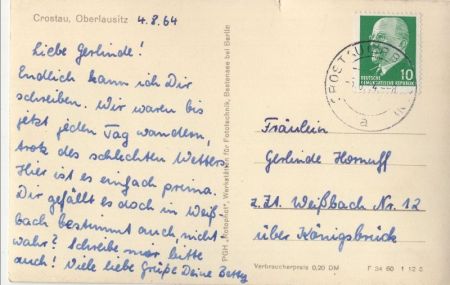 Crostau, Oberlausitz 4.8.64
Liebe Gerlinde!
Endlich kann ich Dir
schreiben. Wir waren bis
jetzt jeden Tag wandern,
trotz des schlechten Wetters.
Hier ist es einfach prima.
Dir gefällt es doch in Weiß-
bach bestimmt auch, nicht
wahr? Schreibe mir bitte
auch! Viele liebe Grüße Deine Betty
PGH „Rotophot“, Werkstätten für Fototechnik, Bestensee bei Berlin
DEUTSCHE
DEMOKRATISCHE REPUBLIK
10
a
Fräulein
Gerlinde Hornuff
z. Zt. Weißbach Nr. 12
über Königsbrück
Verbraucherpreis 0,20 DM F 34 60 1 12 6